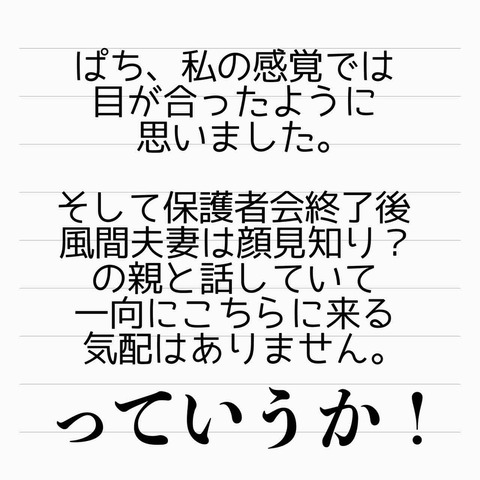 ぱち、私の感覚では
目が合ったように
思いました。
そして保護者会終了後
風間夫妻は顔見知り？
の親と話していて
一向にこちらに来る
気配はありません。
っていうか！